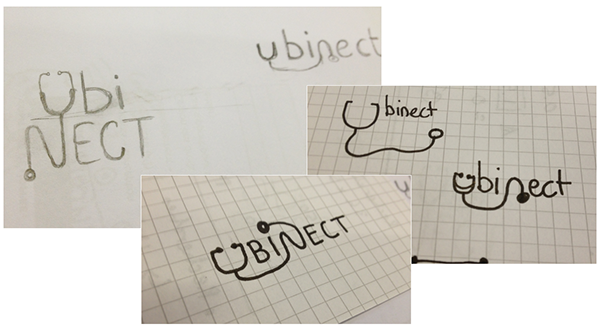 Ubi
NECT
ubinect
Ubinect
ubinect
UBINECT